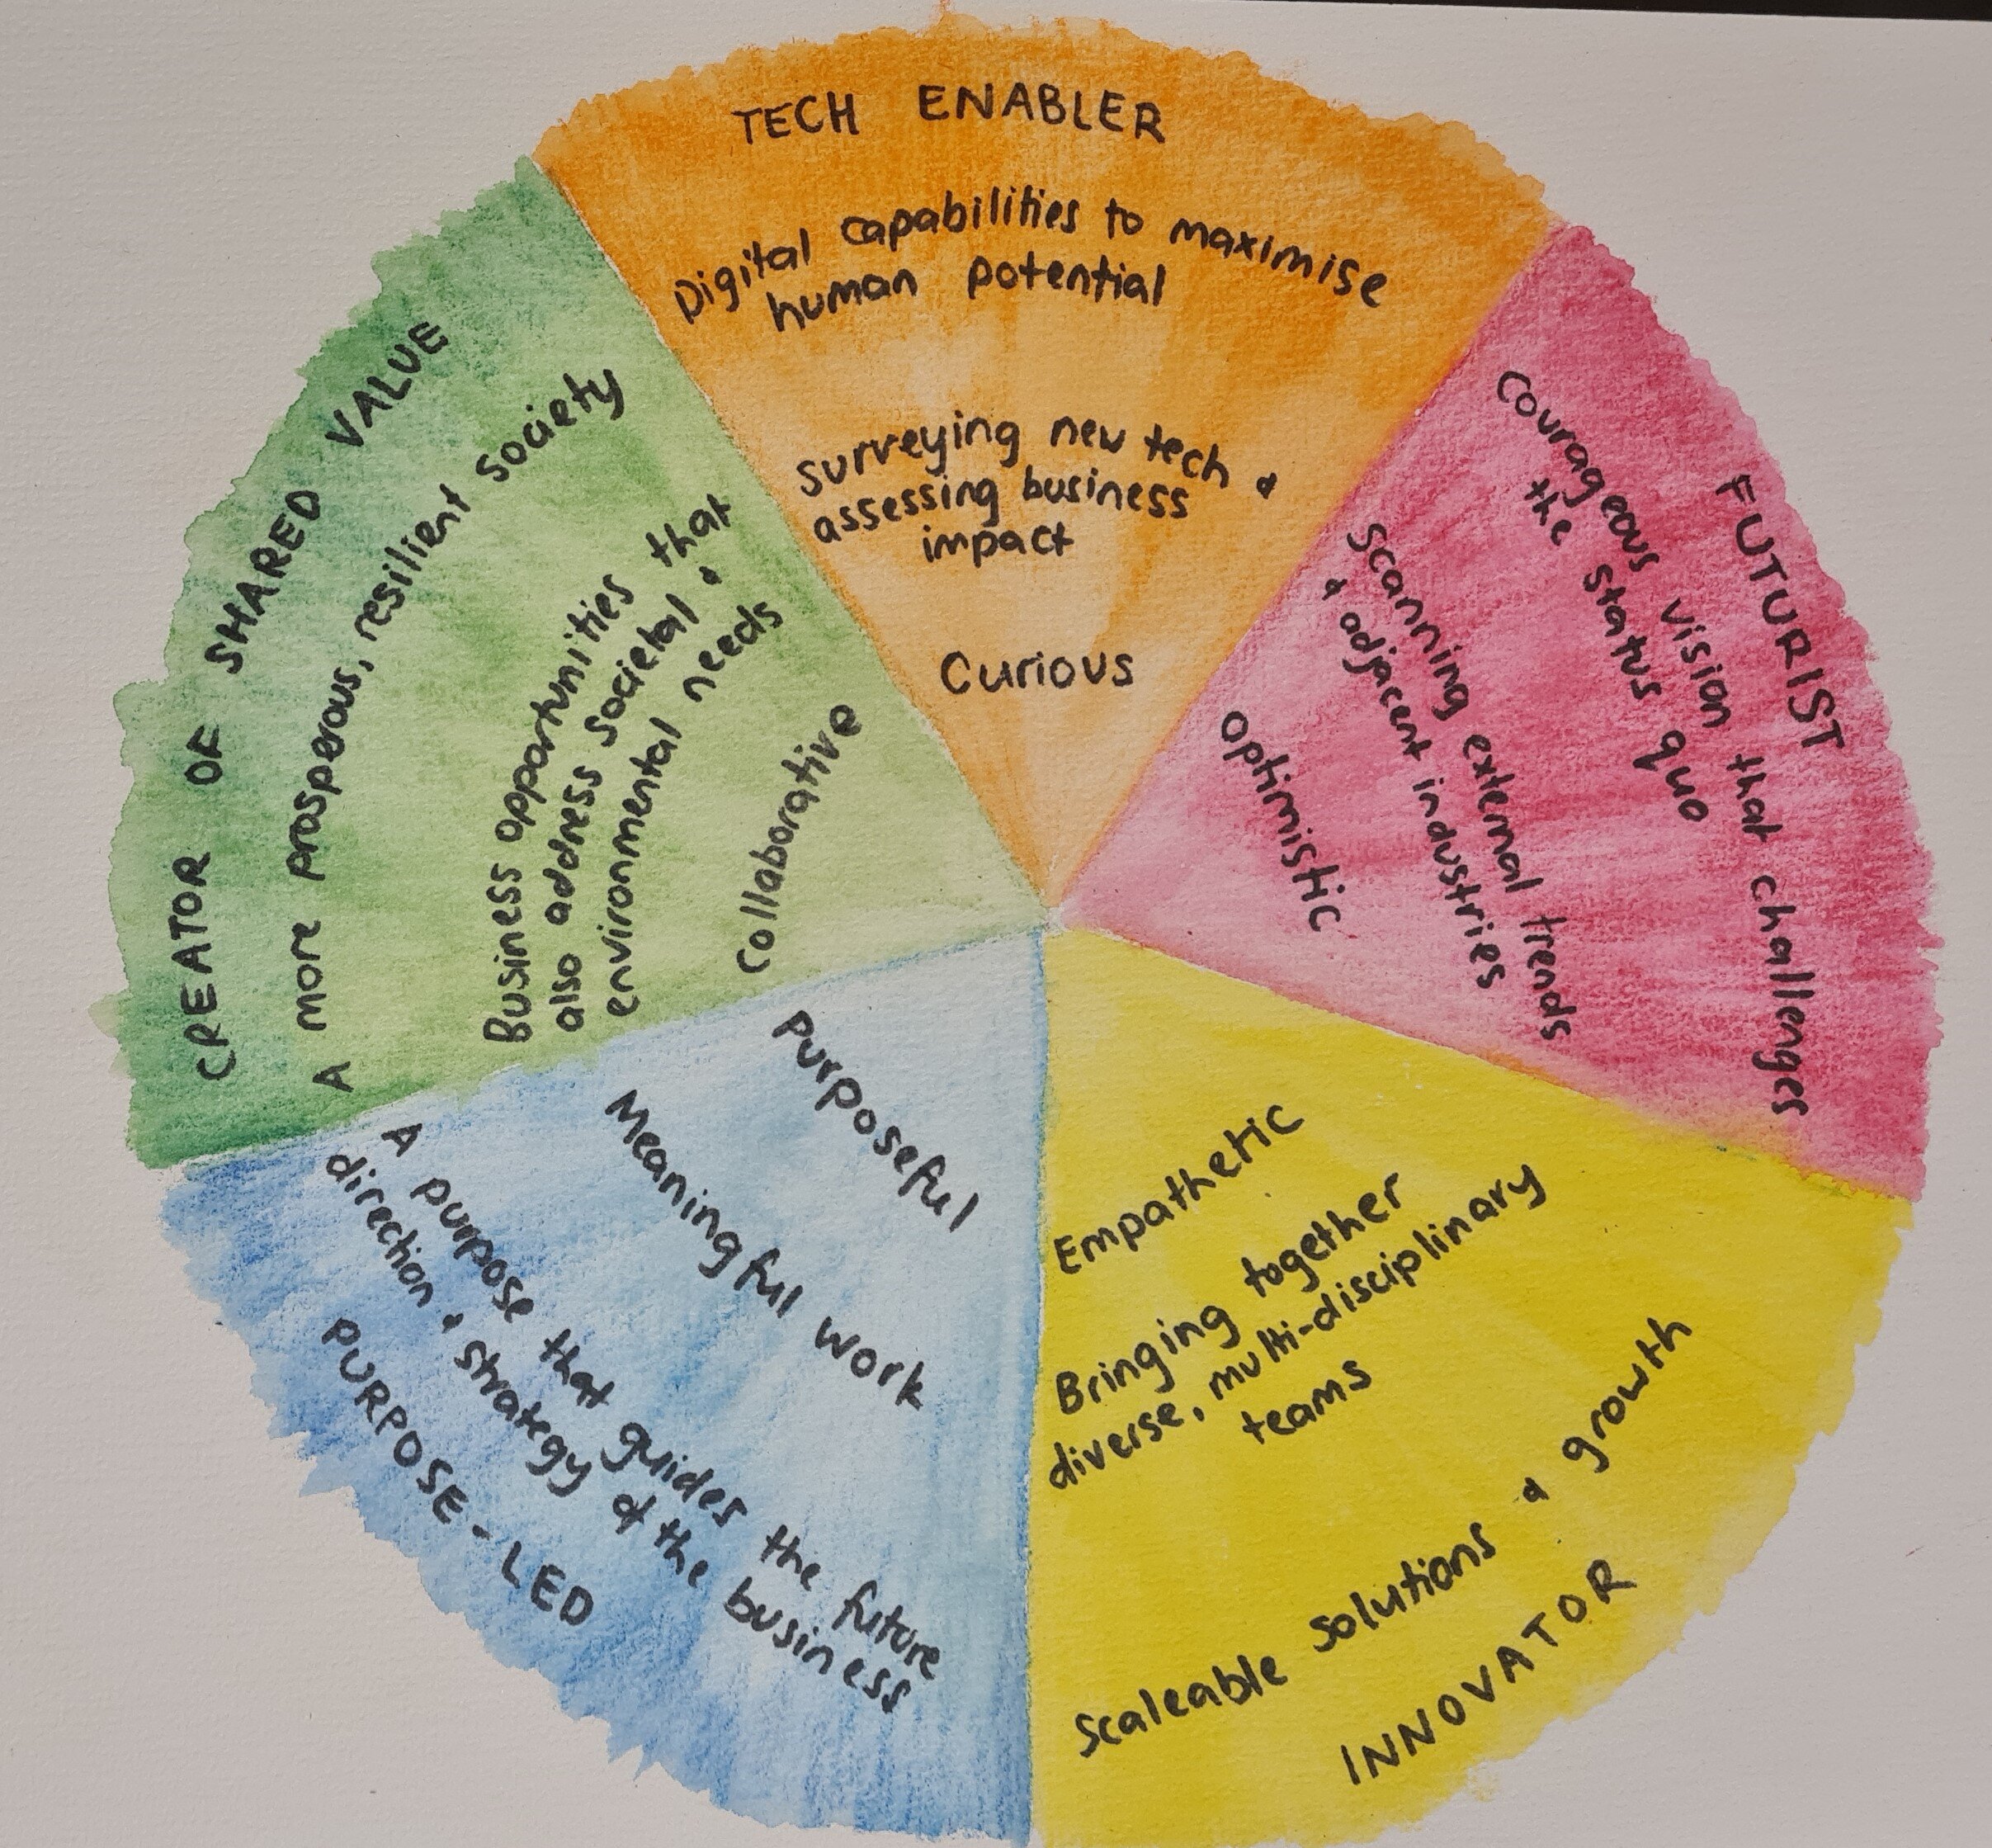 TECH ENABLER
Digital capabilities to maximise
human potential
surveying new tech &
assessing business
impact
Curious
FUTURIST
Courageous vision that challenges
the status quo
Scanning external trends
& adjacent industries
optimistic
Empathetic
Bringing together
diverse, multi-disciplinary
teams
Scaleable solutions & growth
INNOVATOR
Purposeful
Meaningful work
A purpose that guides the future
direction & strategy of the business
PURPOSE-LED
CREATOR OF SHARED VALUE
A more prosperous, resilient society
Business opportunities that
also address societal &
environmental needs
Collaborative